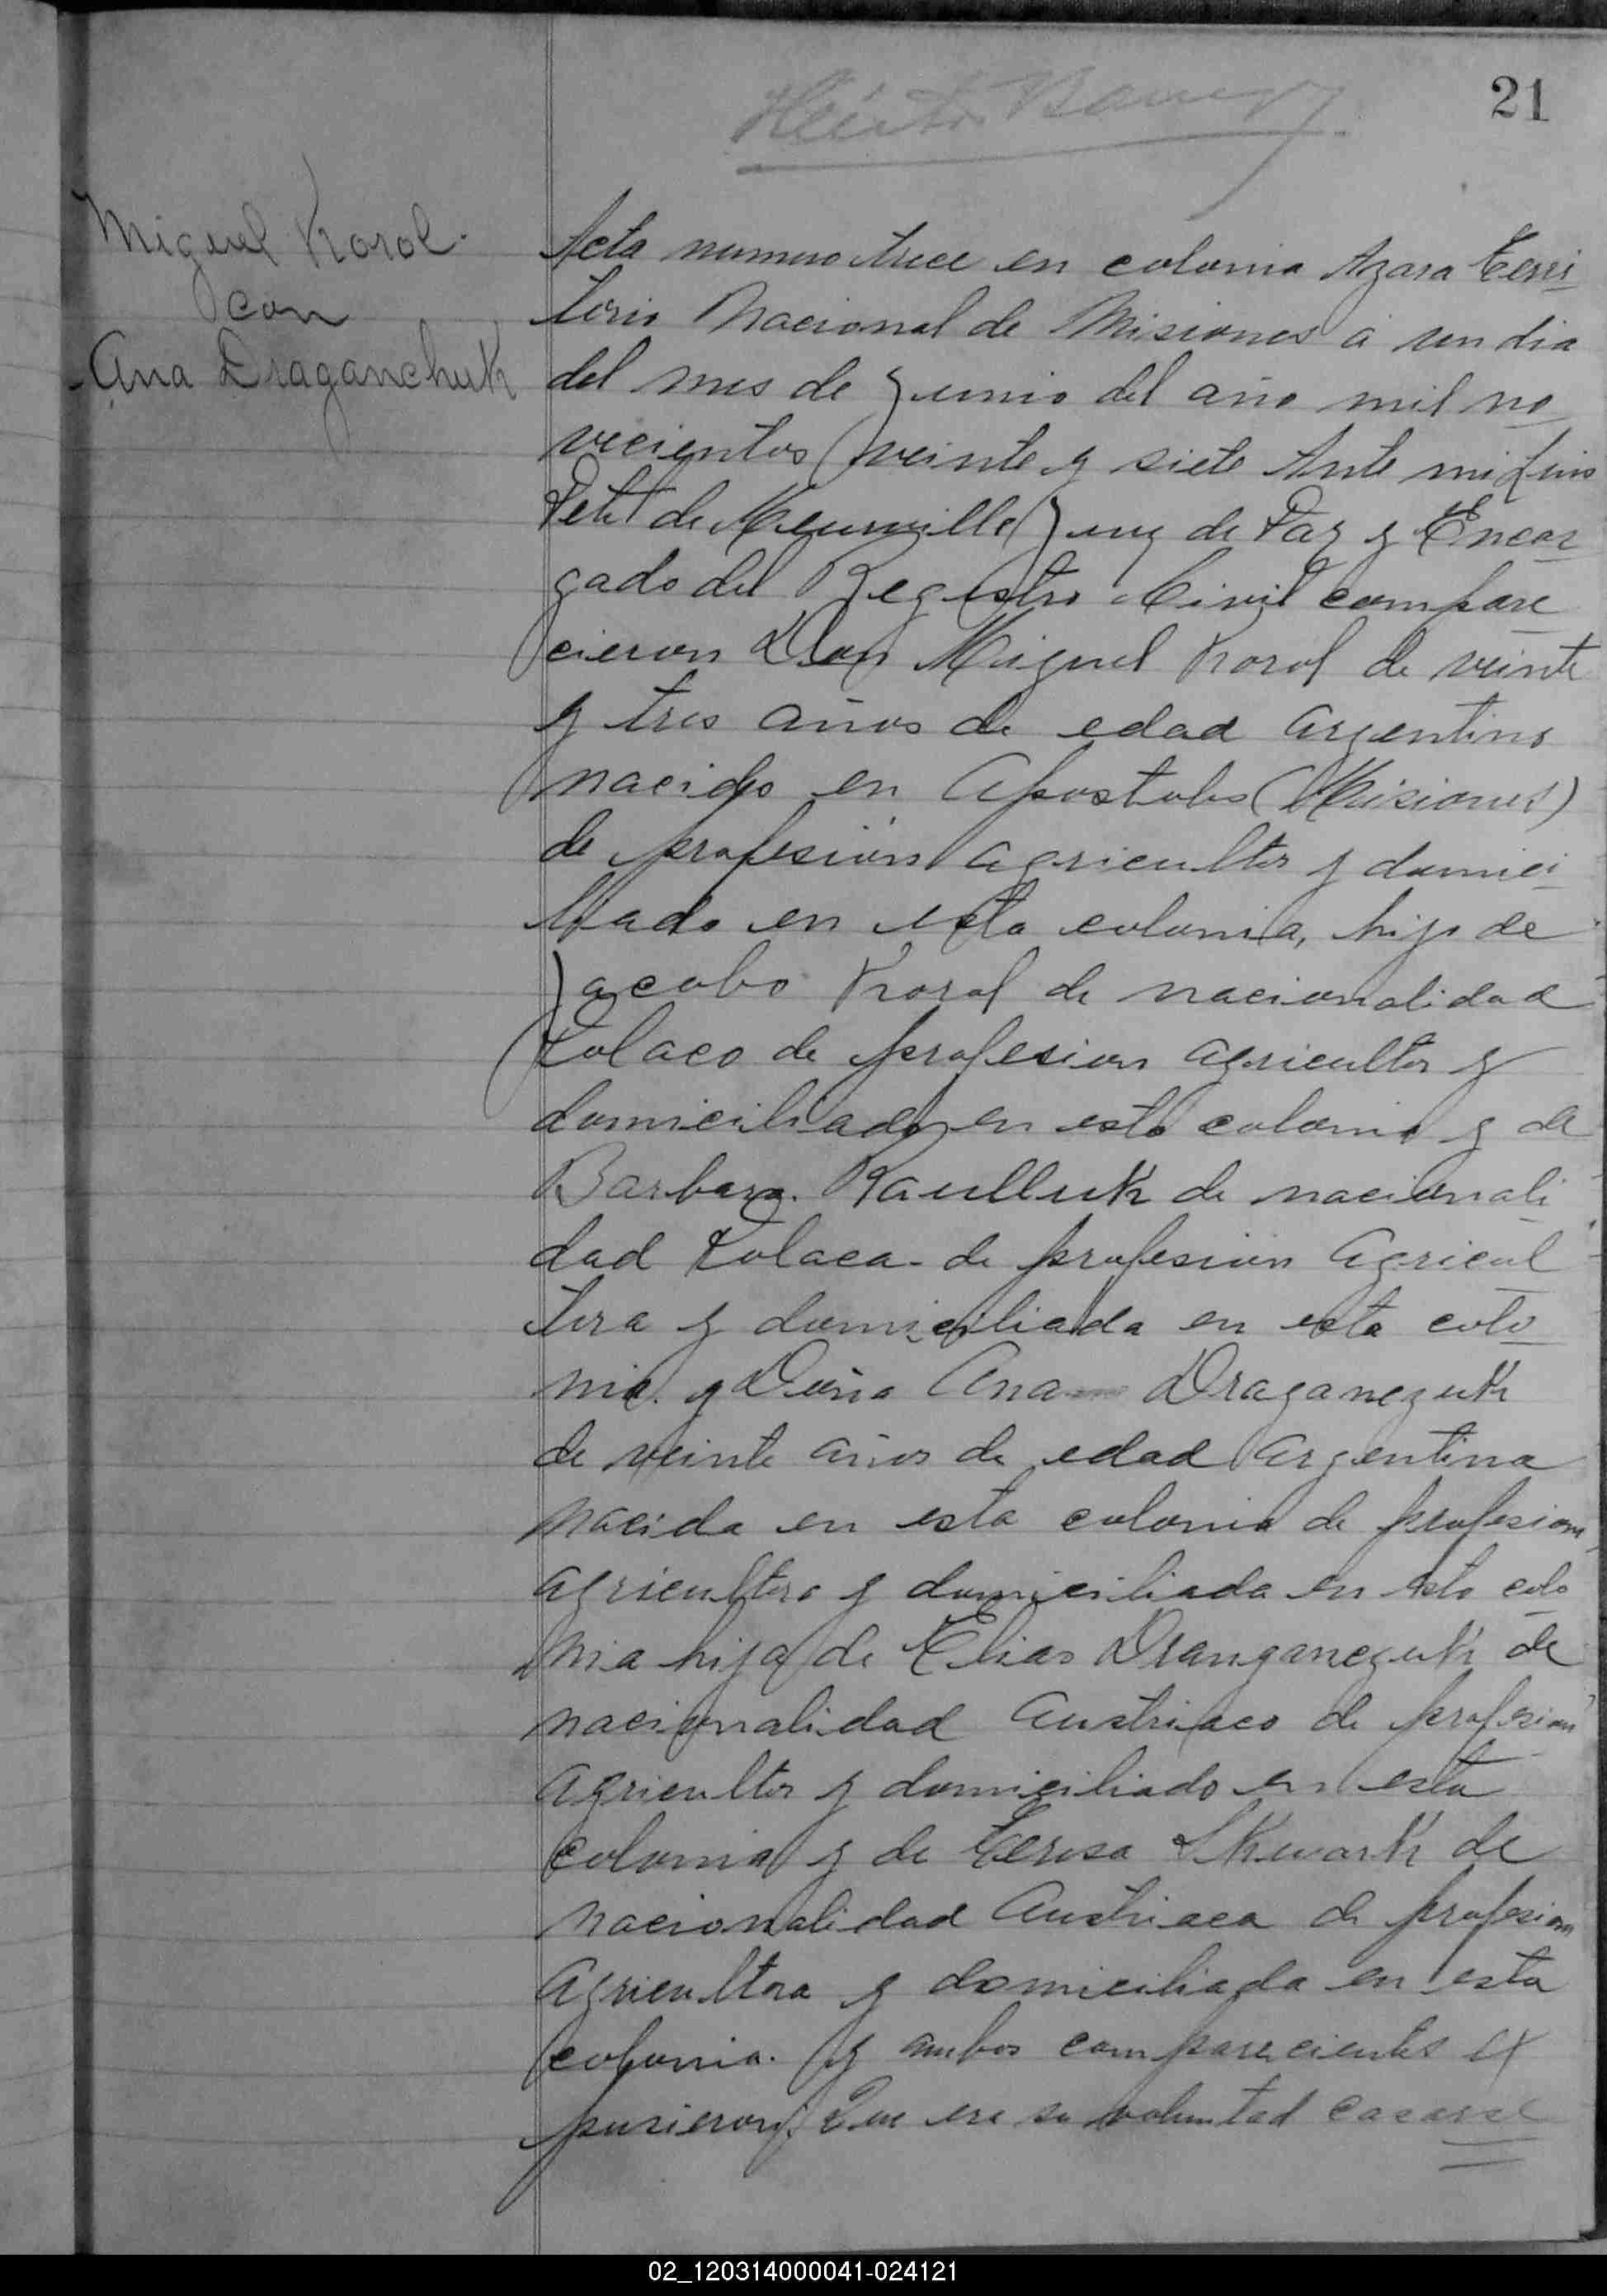 21
Miguel Korol
con
Ana Draganchuk
Acta numero trece en colonia Azara Terri
torio Nacional de Misiones á un dia
del mes de Junio del año mil no
vecientos veinte y siete Ante mi Luis
Petit de Meurville Juez de Paz y Encar
gado del Registro Civil compare
cieron Don Miguel Korol de veinte
y tres años de edad argentino
nacido en Apostoles (Misiones)
de profesión agricultor y domici
liado en esta colonia, hijo de
Jacobo Korol de nacionalidad
Polaco de profesion agricultor y
domiciliado en esta colonia y de
Barbara de nacionali
dad Polaca de profesión agricul
tora y domiciliada en esta colo
nia. y Doña Ana Draganczuk
de veinte años de edad argentina
nacida en esta colonia de profesion
agricultora y domiciliada en esta colo
nia hija de Elias Dranganczuk de
nacionalidad Austriaco de profesion
agricultor y domiciliado en esta
colonia y de Teresa de
nacionalidad Austriaca de profesion
agricultora y domiciliada en esta
colonia. y ambos comparecientes ex
pusieron: Que era su voluntad casarse
02_120314000041-024121